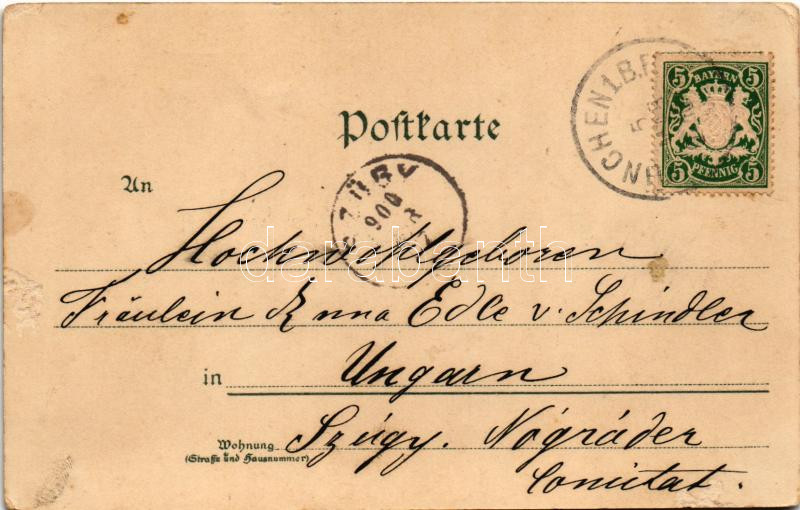 MÜNCHEN 1. B.P.
5
5 BAYERN 5
5 PFENNIG 5
Postkarte
An
900
Hochwohlgeboren
Fräulein Anna Edle v. Schindler
in Ungarn
Wohnung Szúgy. Nógráder
(Straße und Hausnummer)
Comitat.
darabanth